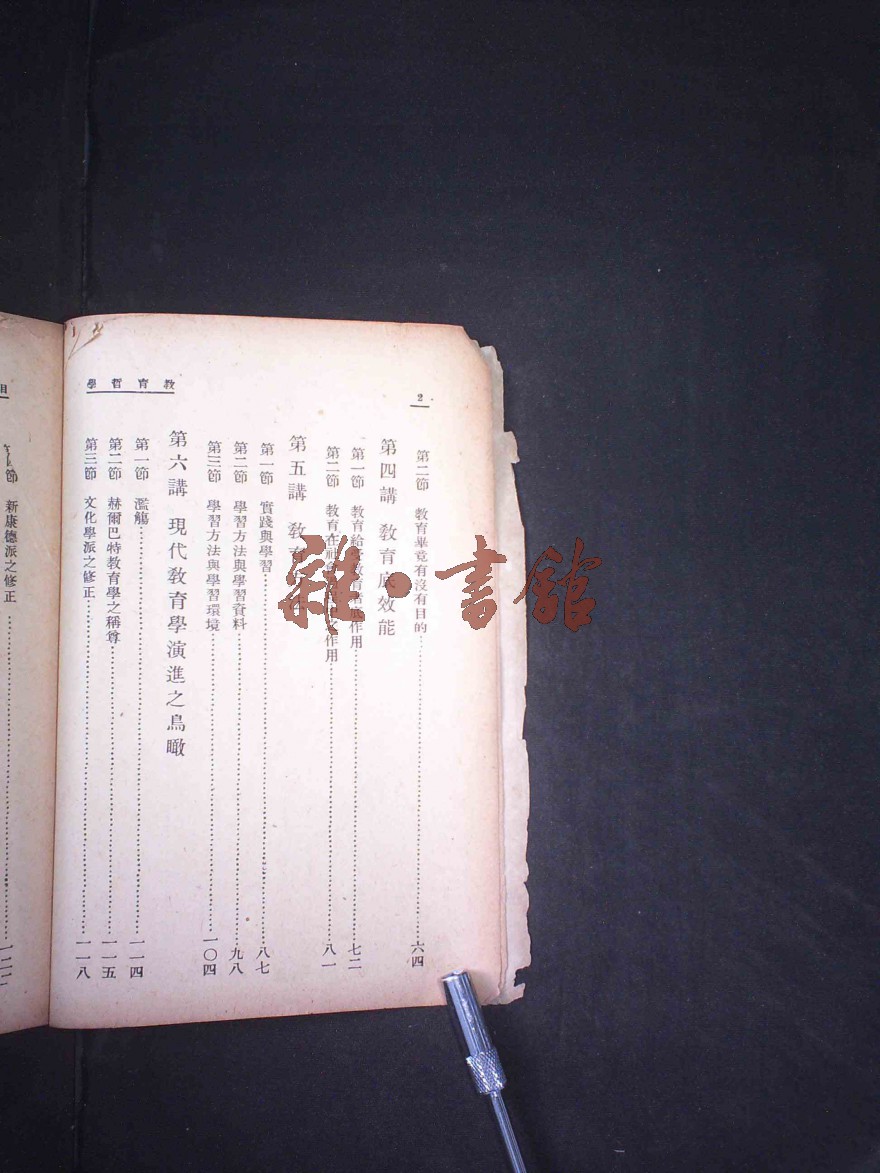 教育哲學
2
第二節 教育畢竟有沒有目的 六四
第四講 教育底效能
第一節 教育給 作用 七二
第二節 教育在社會 作用 八一
第五講 教育
第一節 實踐與學習 八七
第二節 學習方法與學習資料 九八
第三節 學習方法與學習環境 一〇四
第六講 現代教育學演進之鳥瞰
第一節 濫觴 一一四
第二節 赫爾巴特教育學之稱尊 一一五
第三節 文化學派之修正 一一八
節 新康德派之修正
雜·書館